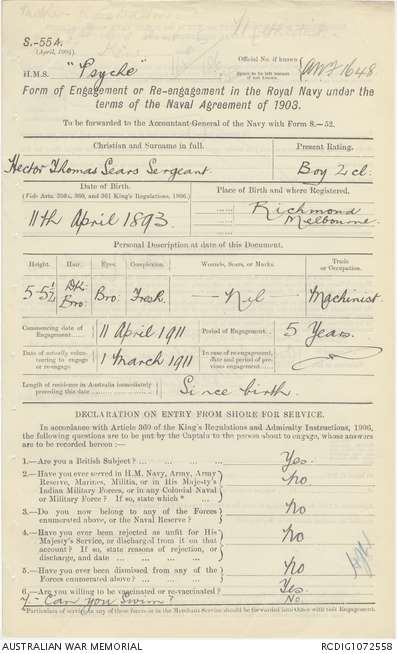 S.-55A.
(April, 1904)
H.M.S. "Psyche"
Official No. if known
ANF 1648
Form of Engagement or Re-engagement in the Royal Navy under the
terms of the Naval Agreement of 1903.
To be forwarded to the Accountant-General of the Navy with Form S.-52.
Christian and Surname in full. Present Rating.
Hector Thomas Sears Sergeant Boy 2 cl.
Date of Birth.
(Vide Arts. 359A, 360, and 361 King's Regulations, 1906.)
Place of Birth and where Registered.
11th April 1893
Richmond
Melbourne
Personal Description at date of this Document.
Height. Hair. Eyes. Complexion. Wounds, Scars, or Marks. Trade or Occupation.
5 5½ Dk. Bro. Bro. Fresh. — Nil — Machinist.
Commencing date of Engagement. 11 April 1911 Period of Engagement. 5 Years.
Date of actually volunteering to engage or re-engage. 1 March 1911 In case of re-engagement, date and period of previous engagement.
Length of residence in Australia immediately preceding this date Since birth.
DECLARATION ON ENTRY FROM SHORE FOR SERVICE.
In accordance with Article 360 of the King's Regulations and Admiralty Instructions, 1906,
the following questions are to be put by the Captain to the person about to engage, whose answers
are to be recorded hereon :—
1.—Are you a British Subject? Yes.
2.—Have you ever served in H.M. Navy, Army, Army
Reserve, Marines, Militia, or in His Majesty's
Indian Military Forces, or in any Colonial Naval
or Military Force? If so, state which * No
3.—Do you now belong to any of the Forces
enumerated above, or the Naval Reserve? No
4.—Have you ever been rejected as unfit for His
Majesty's Service, or discharged from it on that
account? If so, state reasons of rejection, or
discharge, and date No
5.—Have you ever been dismissed from any of the
Forces enumerated above? No
6.—Are you willing to be vaccinated or re-vaccinated? Yes.
7- Can you Swim? No.
*Particulars of service in any of these forces or in the Merchant Service should be forwarded with this engagement.
AUSTRALIAN WAR MEMORIAL RCDIG1072558